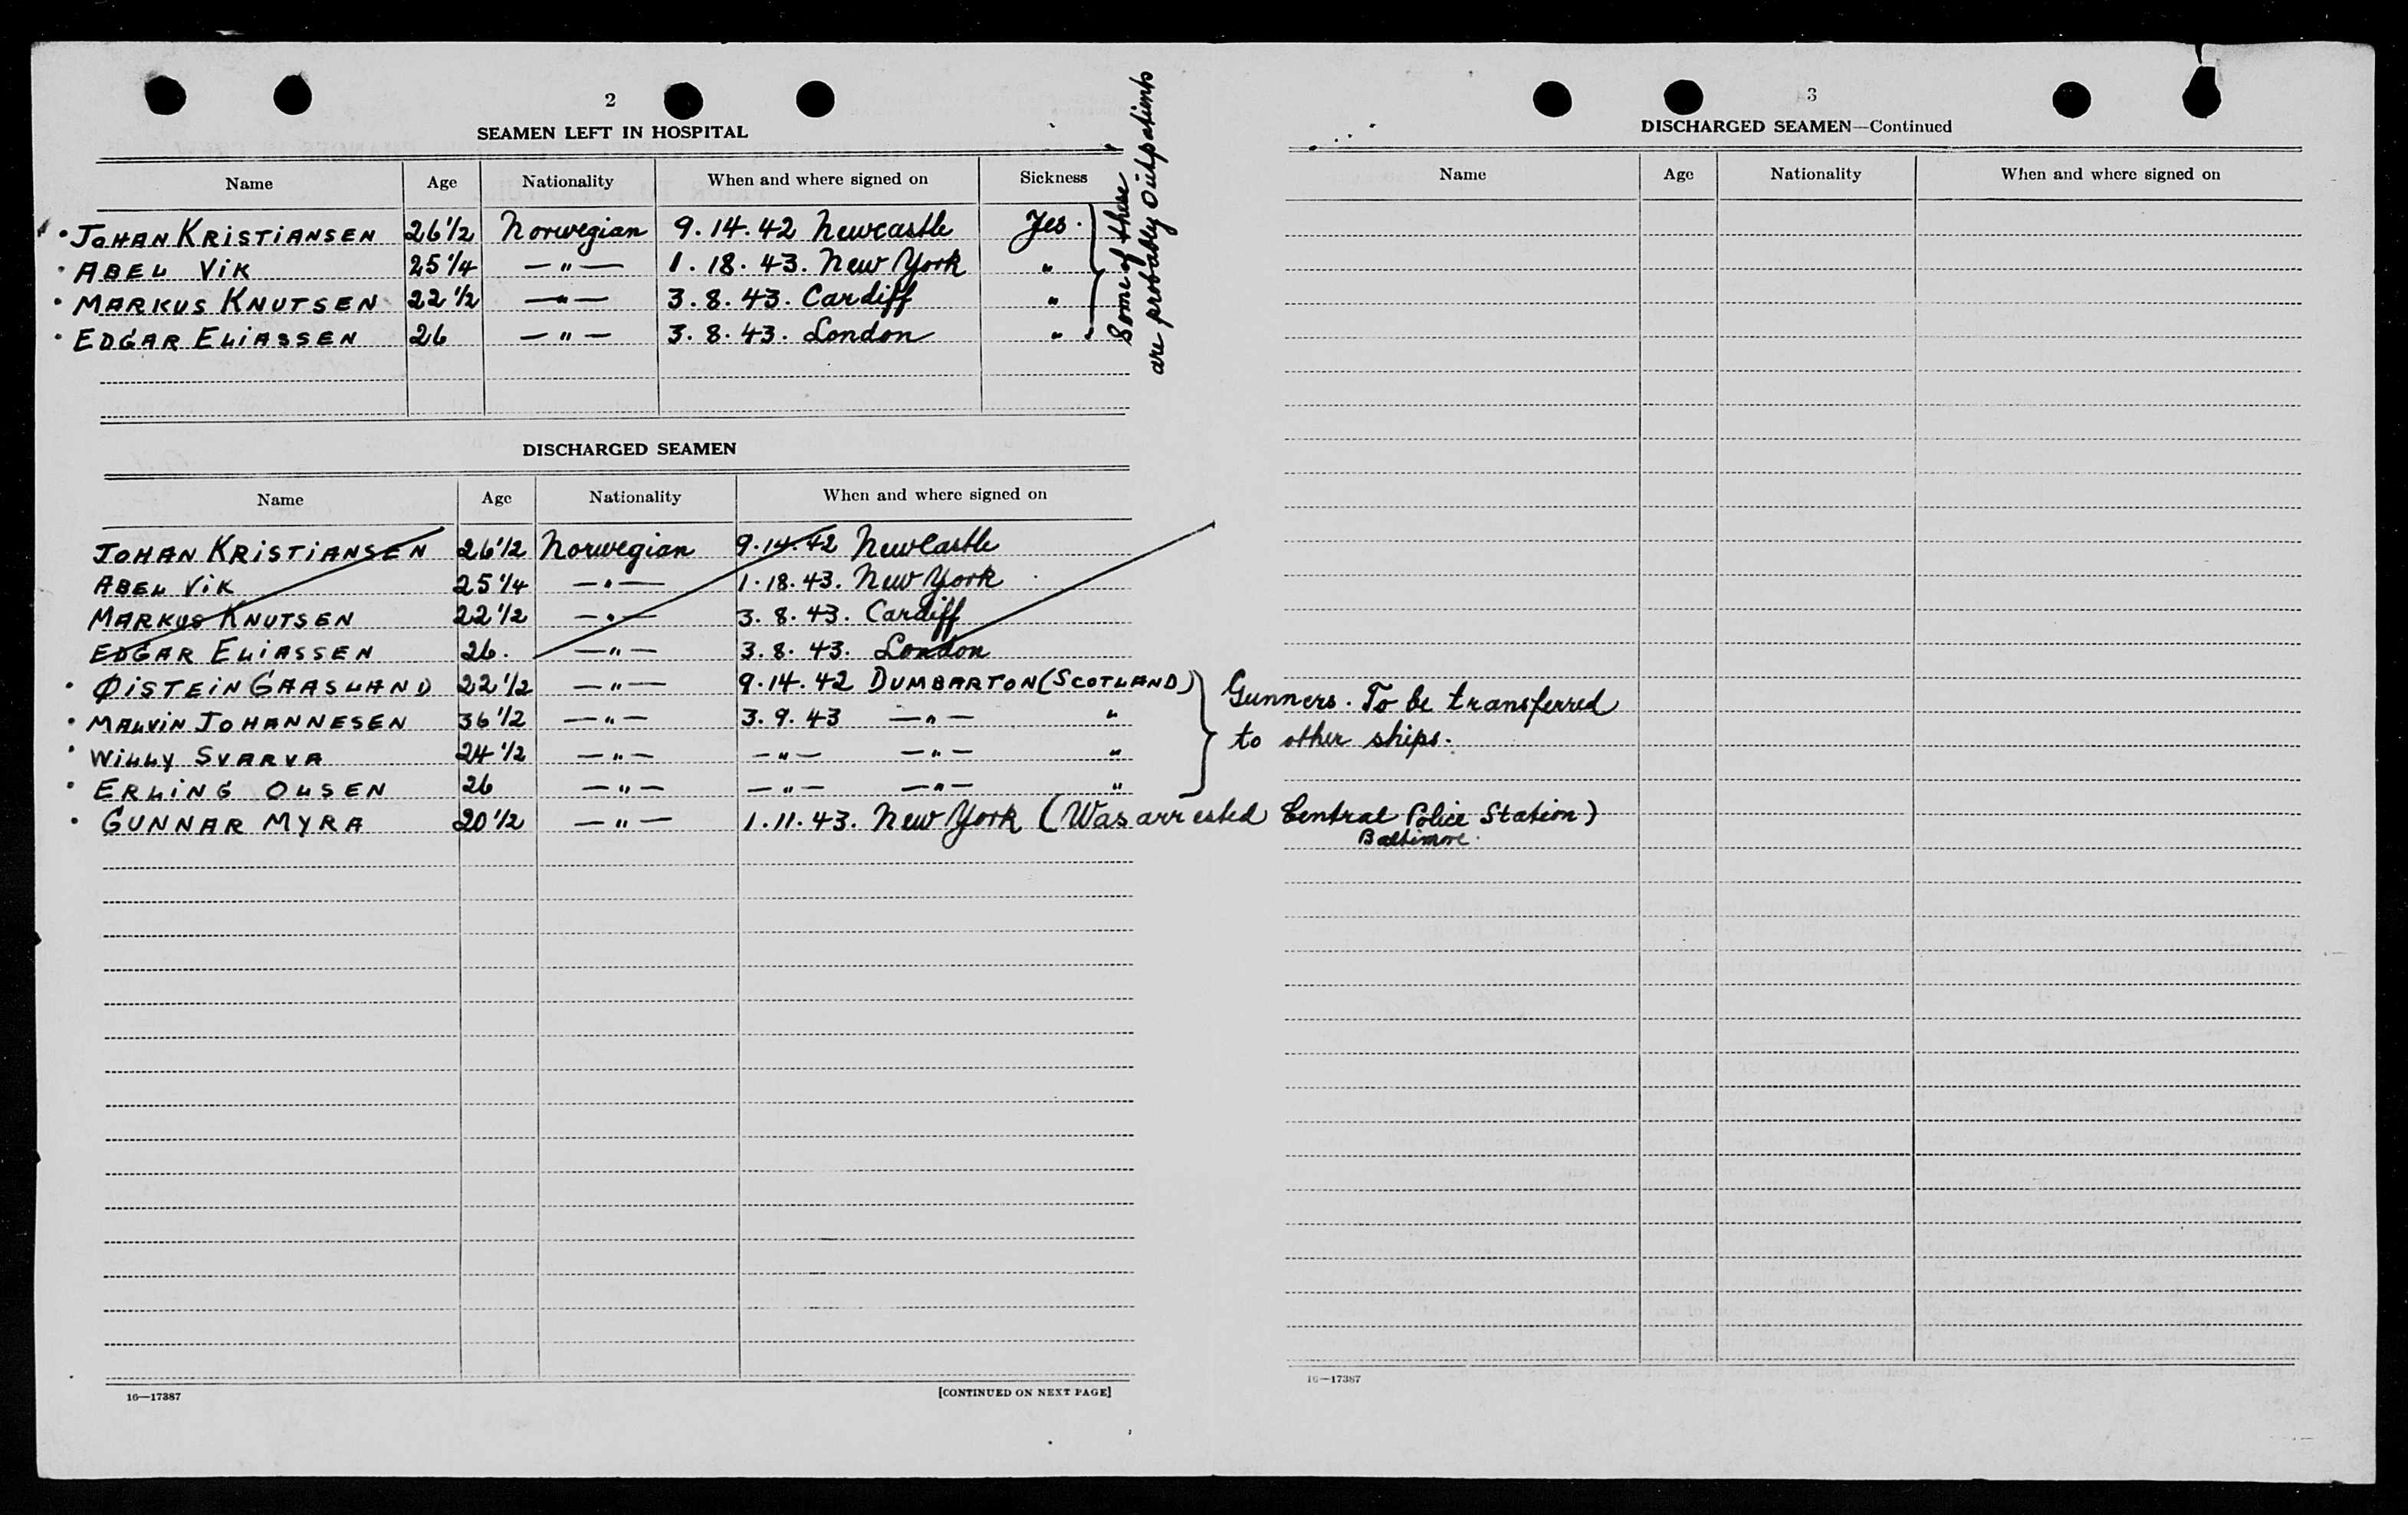 2
SEAMEN LEFT IN HOSPITAL
Name Age Nationality When and where signed on Sickness
JOHAN KRISTIANSEN 26 1/2 Norwegian 9.14.42 Newcastle Yes.
ABEL VIK 25 1/4 — " — 1.18.43. New York "
MARKUS KNUTSEN 22 1/2 — " — 3.8.43. Cardiff "
EDGAR ELIASSEN 26 — " — 3.8.43. London "
Some of these
are probably outpatients
DISCHARGED SEAMEN
Name Age Nationality When and where signed on
JOHAN KRISTIANSEN 26 1/2 Norwegian 9.14.42 Newcastle
ABEL VIK 25 1/4 — " — 1.18.43. New York
MARKUS KNUTSEN 22 1/2 — " — 3.8.43. Cardiff
EDGAR ELIASSEN 26. — " — 3.8.43. London
ØISTEIN GAASLAND 22 1/2 — " — 9.14.42 DUMBARTON (SCOTLAND)
MALVIN JOHANNESEN 36 1/2 — " — 3.9.43 — " — "
WILLY SVARVA 24 1/2 — " — — " — — " — "
ERLING OLSEN 26 — " — — " — — " — "
Gunners. To be transferred
to other ships.
GUNNAR MYRA 20 1/2 — " — 1.11.43. New York (Was arrested Central Police Station)
Baltimore.
16—17387 [CONTINUED ON NEXT PAGE]
3
DISCHARGED SEAMEN—Continued
Name Age Nationality When and where signed on
16—17387